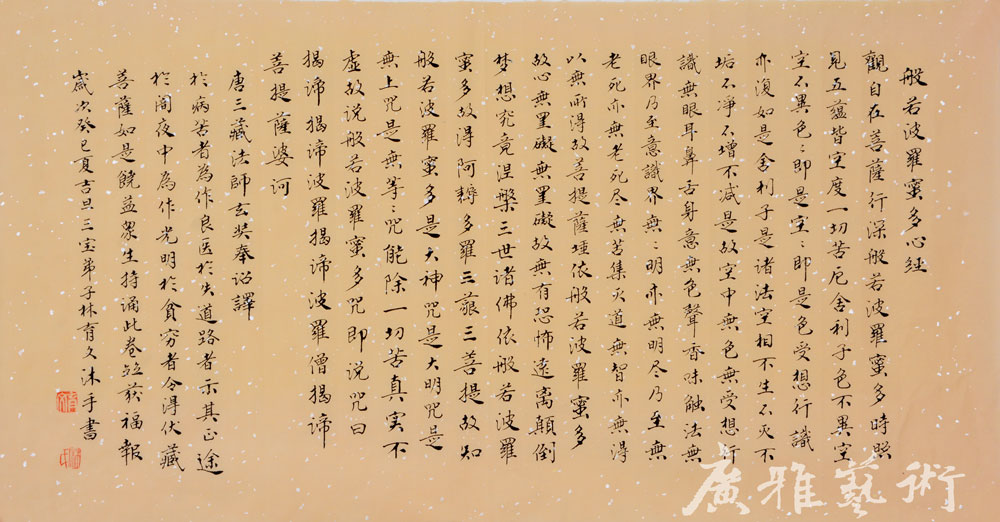 般若波羅蜜多心經
觀自在菩薩行深般若波羅蜜多時照
見五蘊皆空度一切苦厄舍利子色不異空
空不異色〻即是空〻即是色受想行識
亦復如是舍利子是諸法空相不生不灭不
垢不净不增不减是故空中無色無受想行
識無眼耳鼻舌身意無色聲香味觸法無
眼界乃至意識界無〻明亦無明尽乃至無
老死亦無老死尽無苦集灭道無智亦無得
以無所得故菩提薩埵依般若波羅蜜多
故心無罣礙無罣礙故無有恐怖遠离顛倒
梦想究竟涅槃三世诸佛依般若波羅
蜜多故得阿耨多羅三藐三菩提故知
般若波羅蜜多是大神咒是大明咒是
無上咒是無等〻咒能除一切苦真实不
虚故说般若波羅蜜多咒即说咒曰
揭谛揭谛波羅揭谛波羅僧揭谛
菩提薩婆诃
唐三藏法師玄奘奉诏譯
於病苦者為作良医於失道路者示其正途
於闇夜中為作光明於貧穷者令得伏藏
菩薩如是饒益眾生持诵此卷並获福報
歲次癸巳夏吉旦三宝弟子林育文沐手書
廣雅藝術